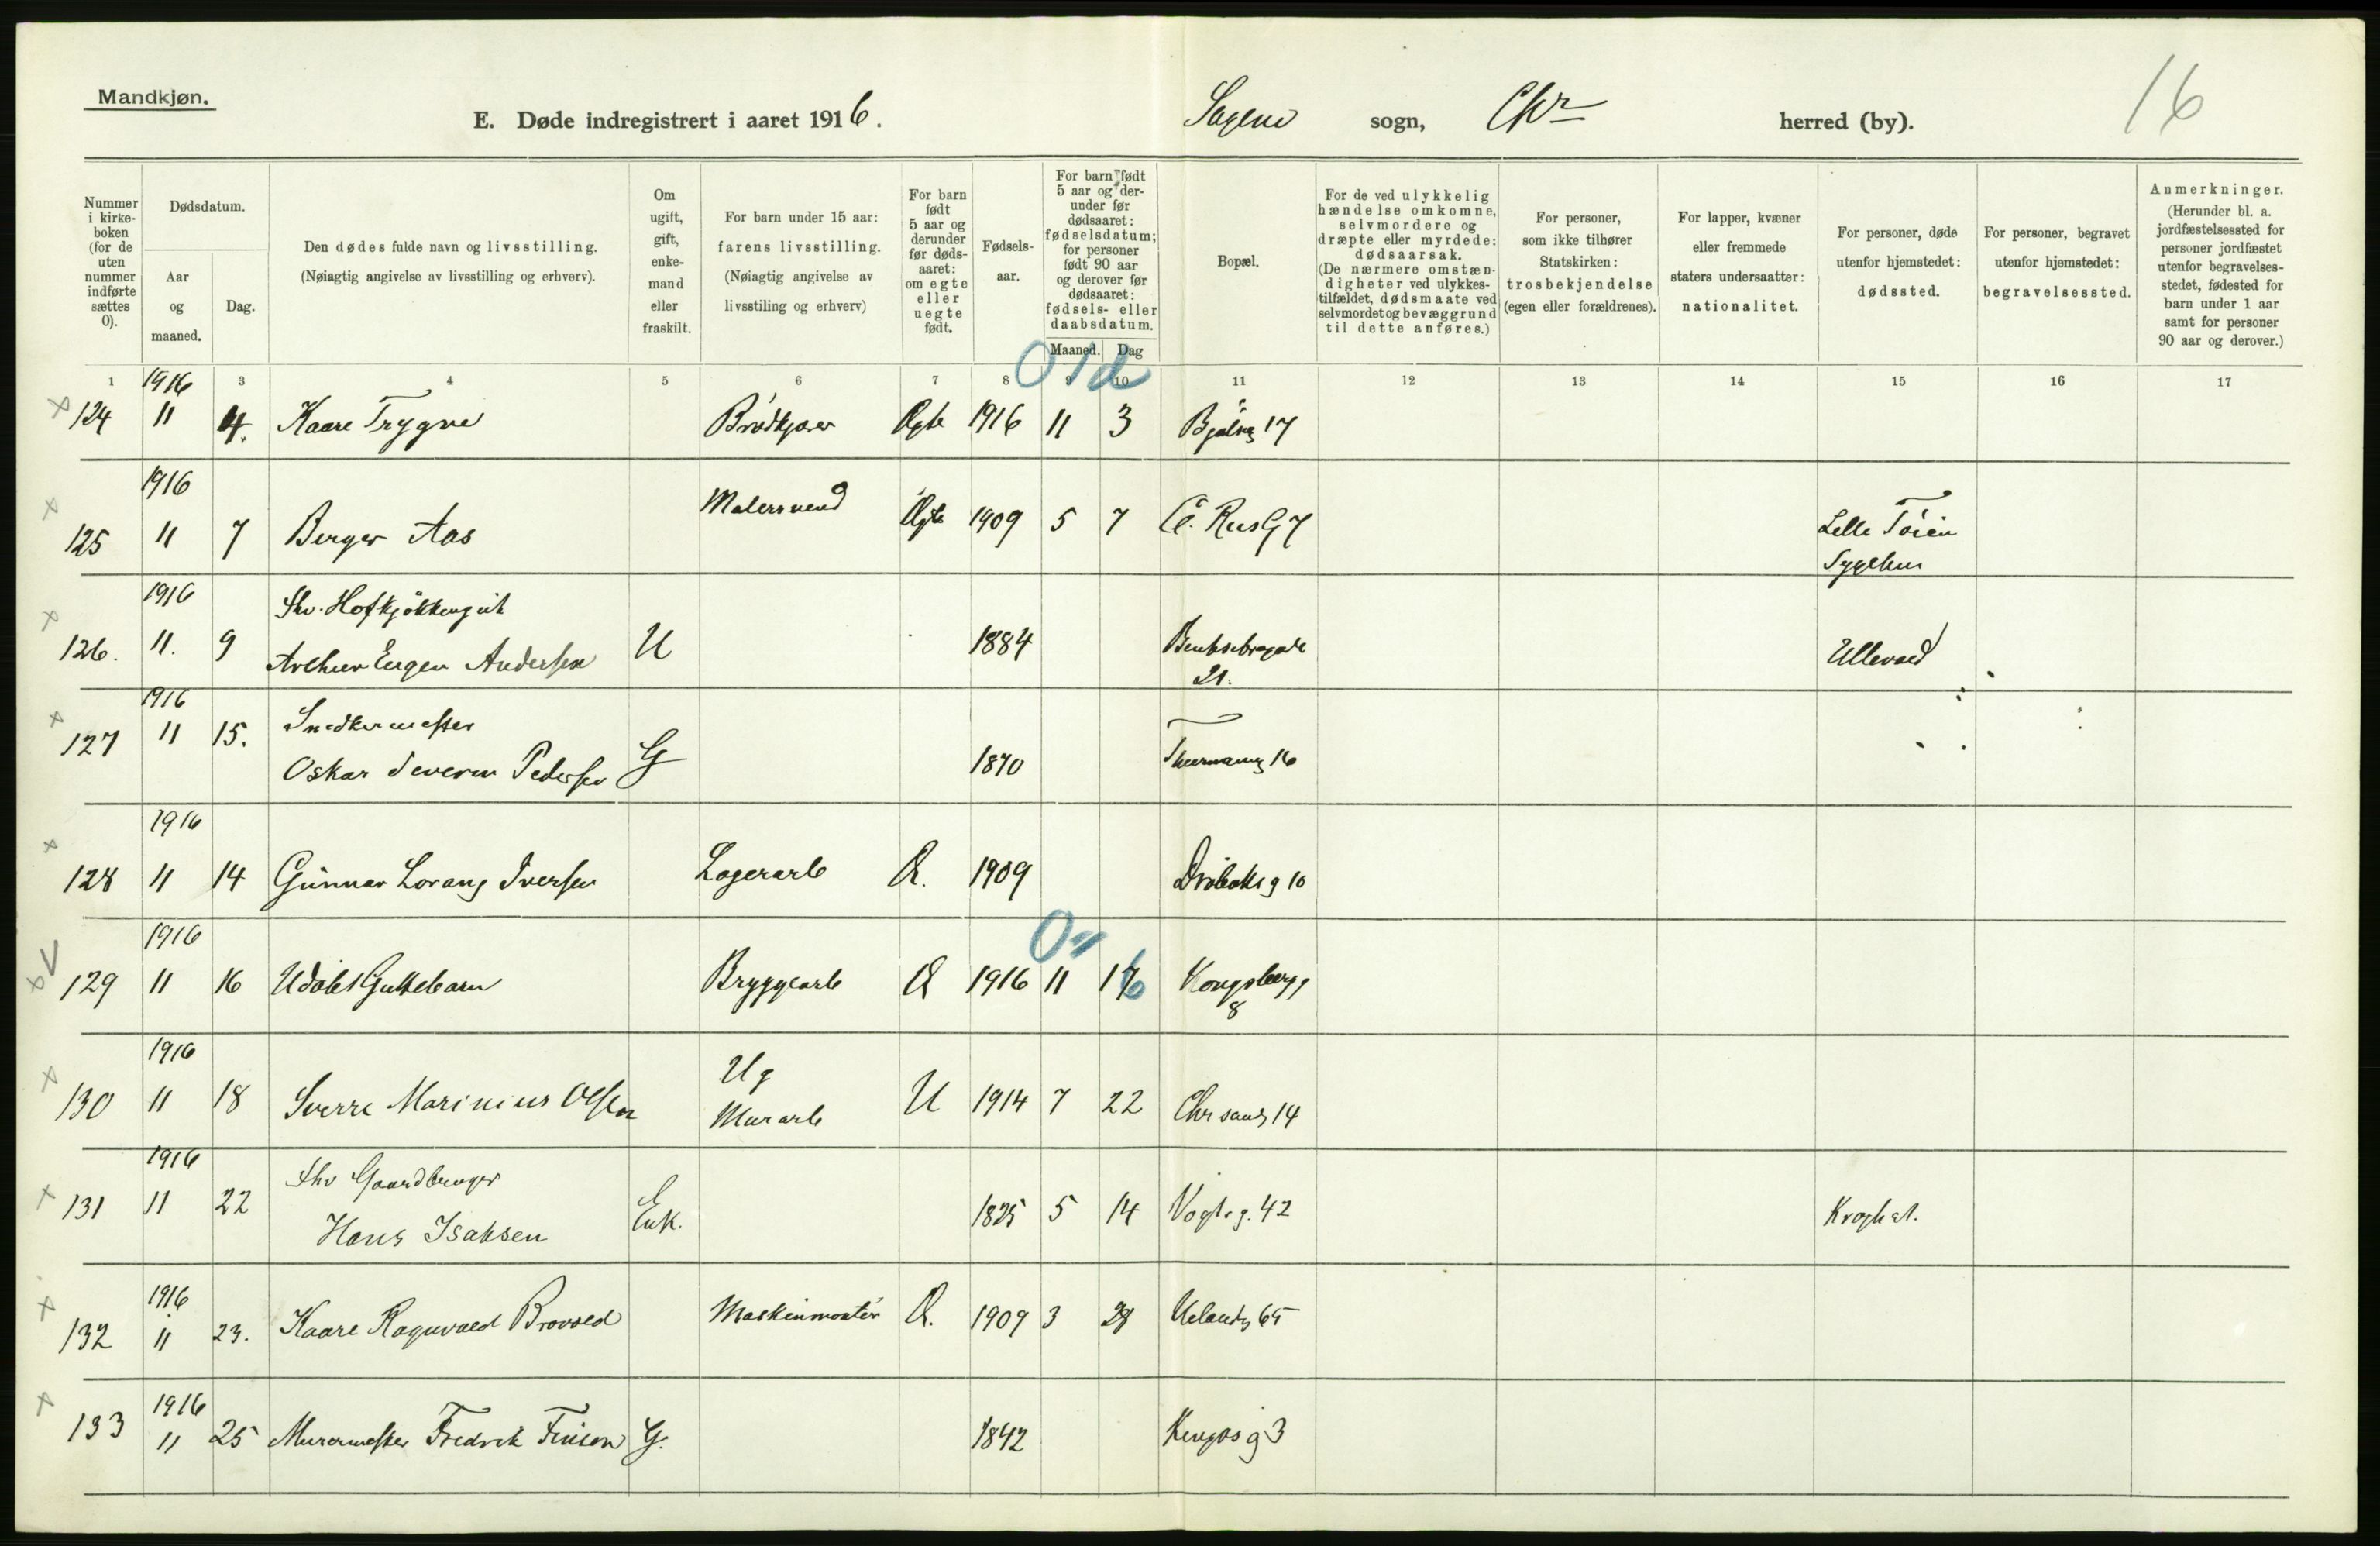 Mandkjøn.
E. Døde indregistrert i aaret 1916.
Sagene sogn, Chr herred (by).
16
Nummer i kirke-boken (for de uten nummer indførte sættes 0).
Dødsdatum.
Aar og maaned.
Dag.
Den dødes fulde navn og livsstilling.
(Nøiagtig angivelse av livsstilling og erhverv).
Om ugift, gift, enke-mand eller fraskilt.
For barn under 15 aar:
farens livsstilling.
(Nøiagtig angivelse av livsstiling og erhverv)
For barn født 5 aar og derunder før døds-aaret: om egte eller uegte født.
Fødsels-aar.
For barn født 5 aar og der-under før dødsaaret: fødselsdatum; for personer født 90 aar og derover før dødsaaret: fødsels- eller daabsdatum.
Maaned. Dag
Bopæl.
For de ved ulykkelig hændelse omkomne, selvmordere og dræpte eller myrdede: dødsaarsak.
(De nærmere omstæn-digheter ved ulykkes-tilfældet, dødsmaate ved selvmordet og bevæggrund til dette anføres.)
For personer, som ikke tilhører Statskirken: trosbekjendelse (egen eller forældrenes).
For lapper, kvæner eller fremmede staters undersaatter: nationalitet.
For personer, døde utenfor hjemstedet: dødssted.
For personer, begravet utenfor hjemstedet: begravelsessted.
Anmerkninger.
(Herunder bl. a. jordfæstelsessted for personer jordfæstet utenfor begravelses-stedet, fødested for barn under 1 aar samt for personer 90 aar og derover.)
1 3 4 5 6 7 8 9 10 11 12 13 14 15 16 17
0 1 d
1916
124 11 4. Kaare Trygve Brødkjører Ægte 1916 11 3 Bjølsg 17
1916
125 11 7 Berger Aas Malersvend Ægte 1909 5 7 RusG 7 Lille Tøien
Sygehus
1916 Fhv. Hofkjøkkengut
126. 11. 9 Arthur Eugen Andersen U 1884 Bentsebrogade Ullevaal
21.
1916 Snedkermester
127 11 15. Oskar Severin Pedersen G 1870 Thurmannsg 16
1916
128 11 14 Gunnar Lorang Iversen Lagerarb Æ. 1909 Drøbaksg 10
1916 0
129 11 16 Udøbt Guttebarn Bryggearb Æ 1916 11 16 Kongsbergg
8
1916 Ug
130 11 18 Sverre Marinius Olsen Murarb U 1914 7 22 Chr sandsg 14
1916 Fhv Gaardbruger
131 11 22 Hans Isaksen Enk. 1825 5 14 Vogtsg. 42 Krogh st.
1916
132 11 23. Kaare Ragnvald Brovold Maskinmontør Æ. 1909 3 28 Uelandsg 65
1916
133 11 25 Murermester Fredrik G. 1842 g 3